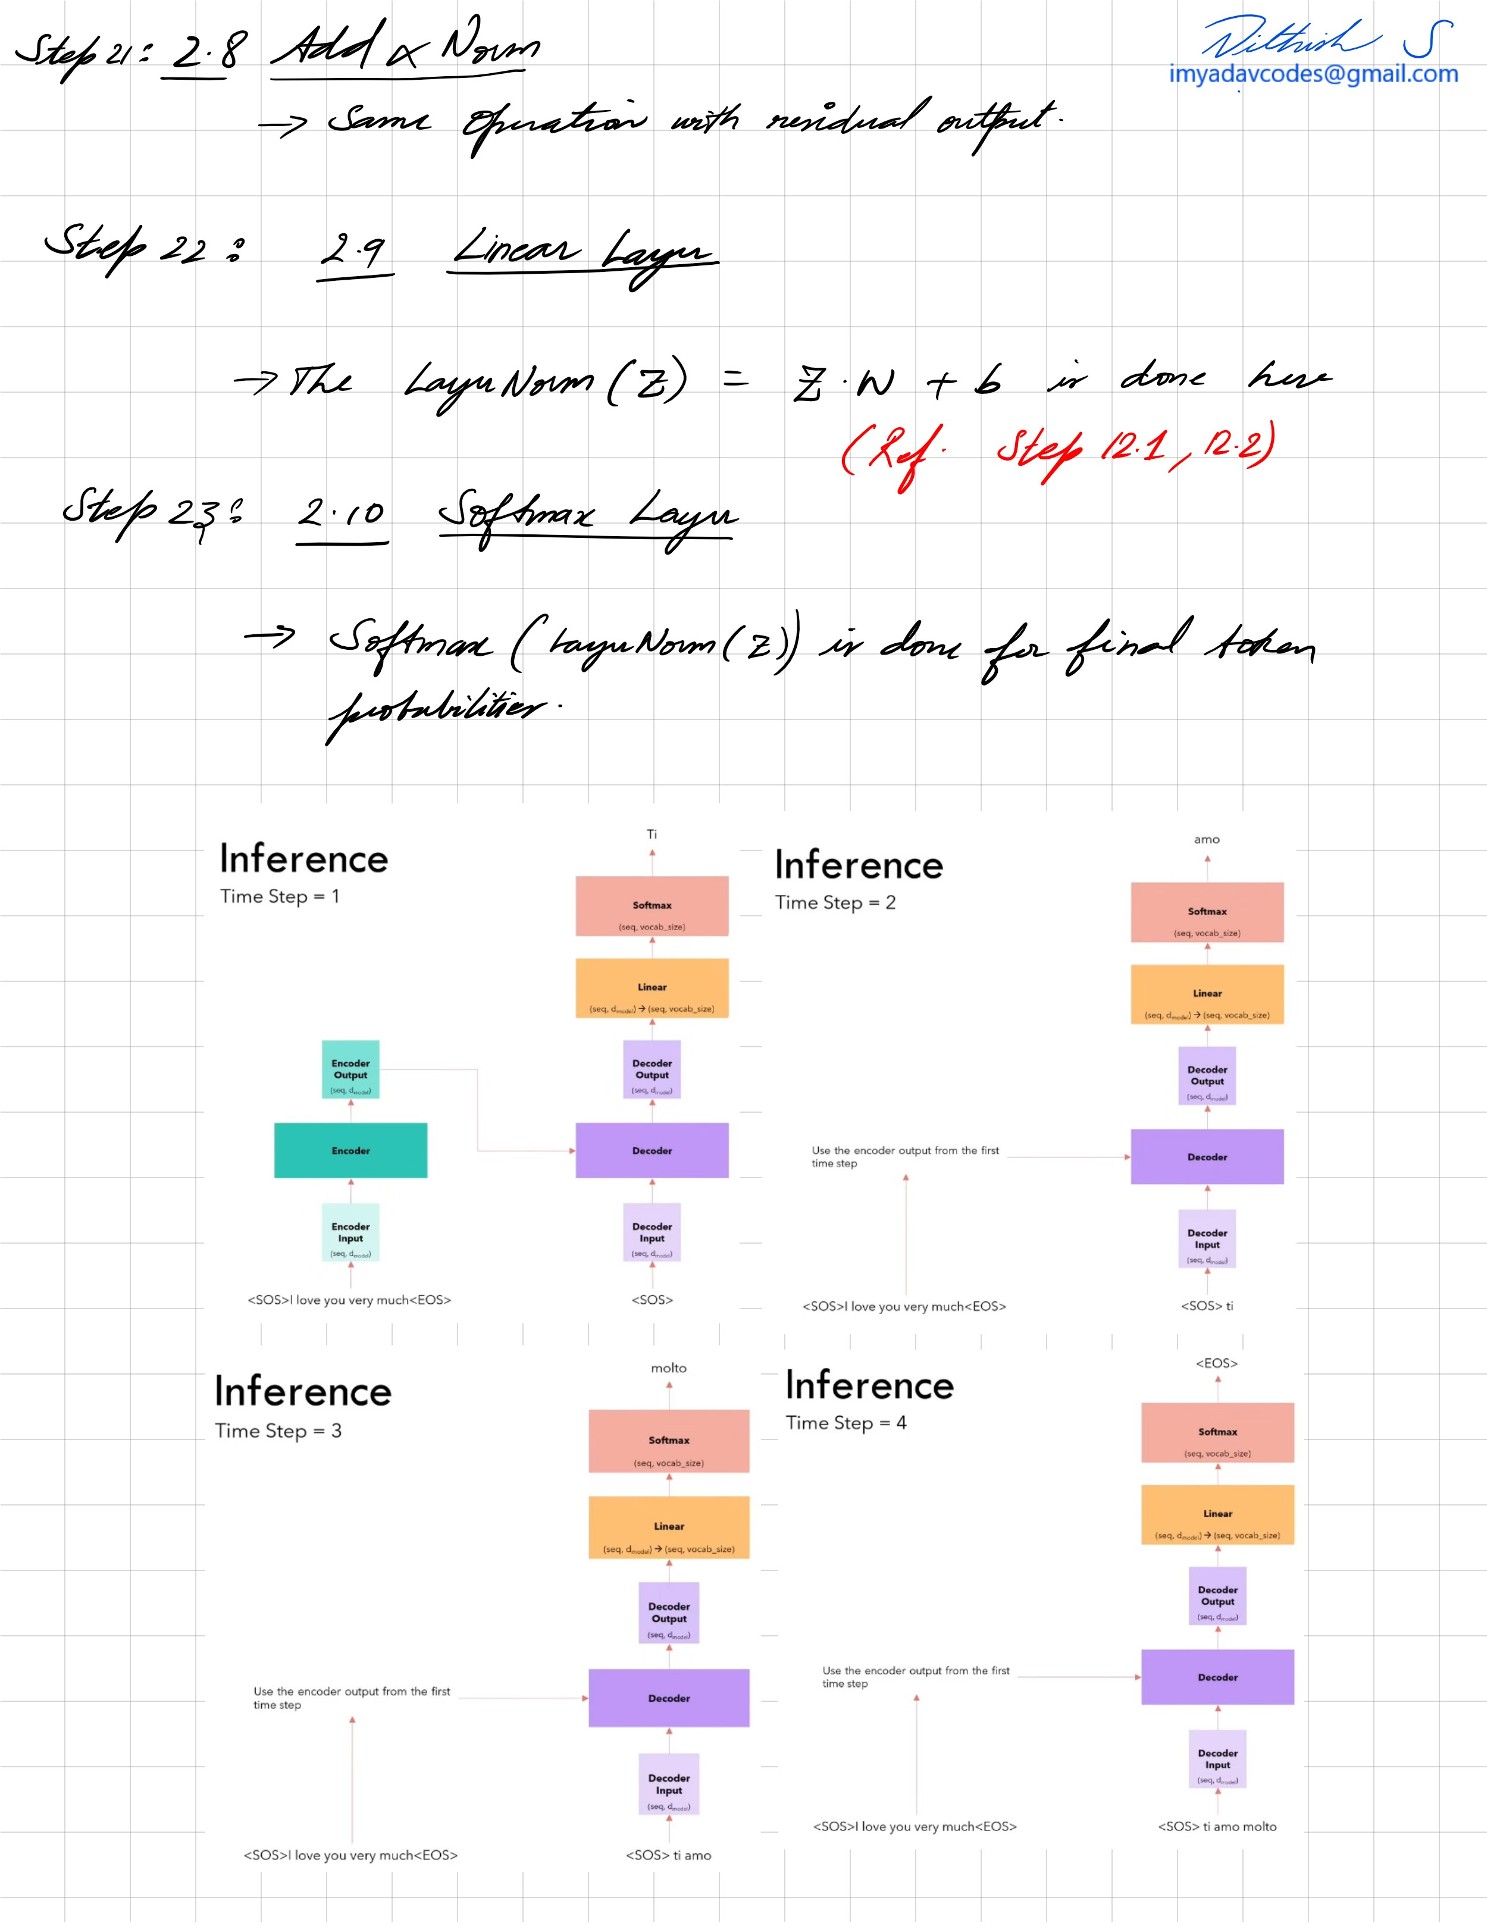 Step 21: 2.8 Add & Norm
Dithish S
imyadavcodes@gmail.com
→ Same operation with residual output.
Step 22: 2.9 Linear Layer
→ The LayerNorm(Z) = Z.W + b is done here
(Ref. Step 12.1, 12.2)
Step 23: 2.10 Softmax Layer
→ Softmax (LayerNorm(Z)) is done for final token
probabilities.
Inference
Time Step = 1
Ti
Softmax
(seq, vocab_size)
Linear
(seq, dmodel) → (seq, vocab_size)
Encoder
Output
(seq, dmodel)
Decoder
Output
(seq, dmodel)
Encoder
Decoder
Encoder
Input
(seq, dmodel)
Decoder
Input
(seq, dmodel)
<SOS>I love you very much<EOS>
<SOS>
Inference
Time Step = 2
amo
Softmax
(seq, vocab_size)
Linear
(seq, dmodel) → (seq, vocab_size)
Decoder
Output
(seq, dmodel)
Use the encoder output from the first
time step
Decoder
Decoder
Input
(seq, dmodel)
<SOS>I love you very much<EOS>
<SOS> ti
Inference
Time Step = 3
molto
Softmax
(seq, vocab_size)
Linear
(seq, dmodel) → (seq, vocab_size)
Decoder
Output
(seq, dmodel)
Use the encoder output from the first
time step
Decoder
Decoder
Input
(seq, dmodel)
<SOS>I love you very much<EOS>
<SOS> ti amo
Inference
Time Step = 4
<EOS>
Softmax
(seq, vocab_size)
Linear
(seq, dmodel) → (seq, vocab_size)
Decoder
Output
(seq, dmodel)
Use the encoder output from the first
time step
Decoder
Decoder
Input
(seq, dmodel)
<SOS>I love you very much<EOS>
<SOS> ti amo molto